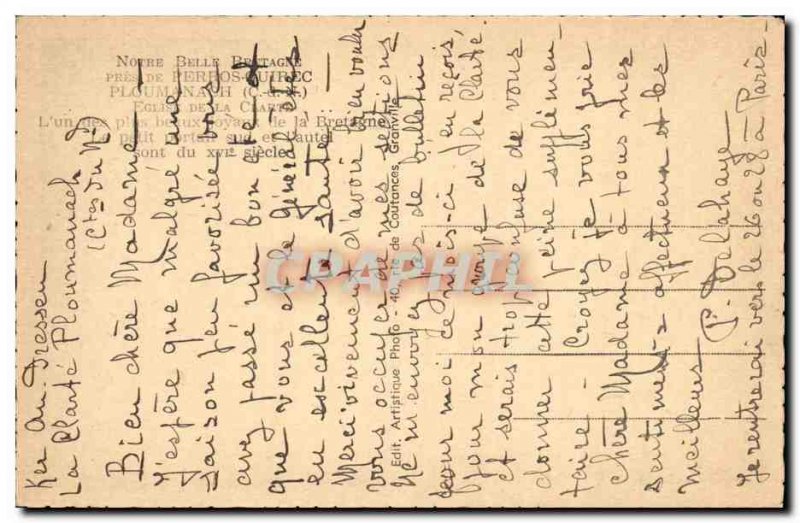 NOTRE BELLE BRETAGNE
PRÈS DE PERROS-GUIREC
PLOUMANACH (C.-d.-N.)
EGLISE DE LA CLARTÉ
L'un des plus beaux joyaux de la Bretagne
Le petit portail sud et l'autel
sont du XVIe siècle
Edit. Artistique Photo - 40, rie de Coutances, Granville
CPAPHIL
Ker An
La Clarté Ploumanach
(Ctes du Nd)
Bien chère Madame
J'espère que malgré une
saison peu favorisée vous
avez passé un bon été et
que vous et le Général êtes
en excellente santé.
Merci vivement d'avoir bien voulu
vous occuper de mes sections
Ne m'envoyez pas de bulletin
pour moi ce mois-ci j'en reçois
pour mon groupe de La Clarté.
et serais trop confuse de vous
donner cette peine supplémen-
taire - Croyez je vous prie
chère Madame à tous mes
sentiments affectueux et les
meilleurs P. Delahaye
Je rentrerai vers le 26 ou 28 à Paris-